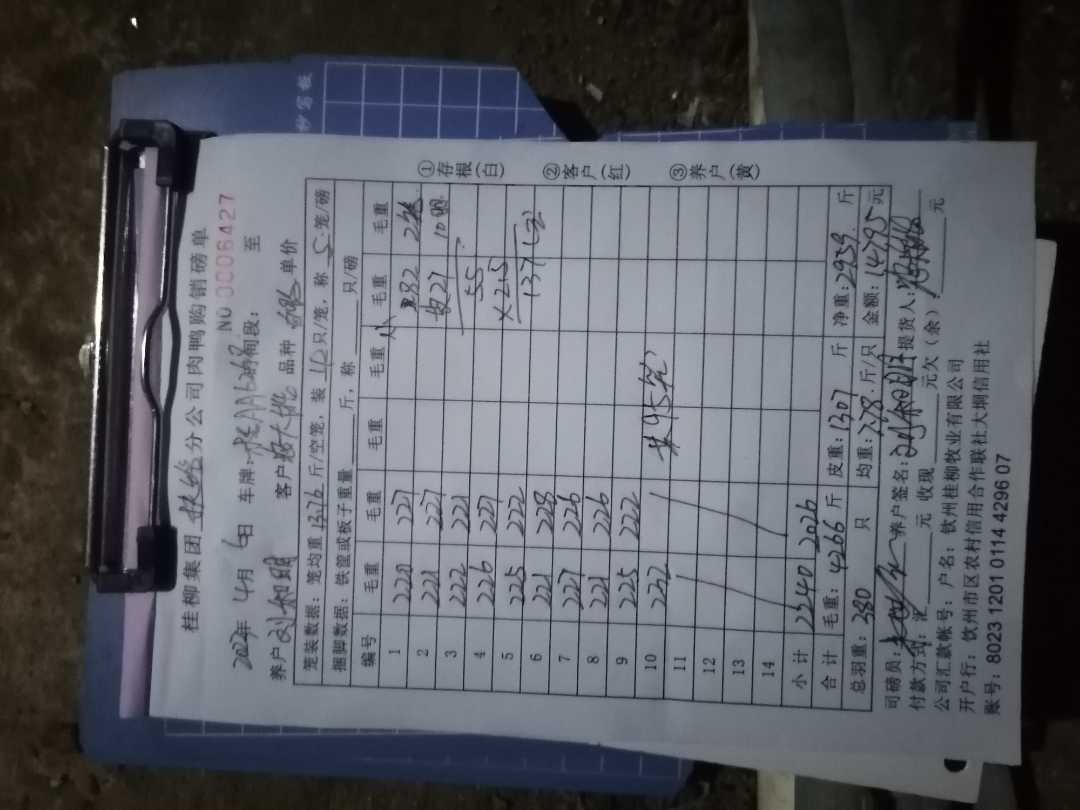 抄写板
桂柳集团 分公司肉鸭购销磅单
4月6日 车牌: 时间段: 至
NO 0006427
养户 刘知明 客户 品种 单价
笼装数据: 笼均重 13.76 斤/空笼, 装 只/笼, 称 5 笼/磅
捆脚数据: 铁筐或板子重量 斤, 称 只/磅
编号 毛重 毛重 毛重 毛重 毛重 毛重
1 220 227
2 221 227
3 222 221
4 226 227
5 225 222
6 221 228
7 227 226
8 221 226
9 225 222
10 232
11
12
13
14
55
×2.5
137
共95笼
小计 2240 2026
合计 毛重: 4266 斤 皮重: 1307 斤 净重: 2959 斤
总羽重: 380 只 均重: 7.78 斤/只 金额: 14795 元
司磅员: 养户签名: 提货人:
付款方式: 汇 元 收现 元欠(余): 元
公司汇款帐号: 户名: 钦州桂柳牧业有限公司
开户行: 钦州市区农村信用合作联社大垌信用社
账号: 8023 1201 0114 4296 07
①存根(白)
②客户(红)
③养户(黄)